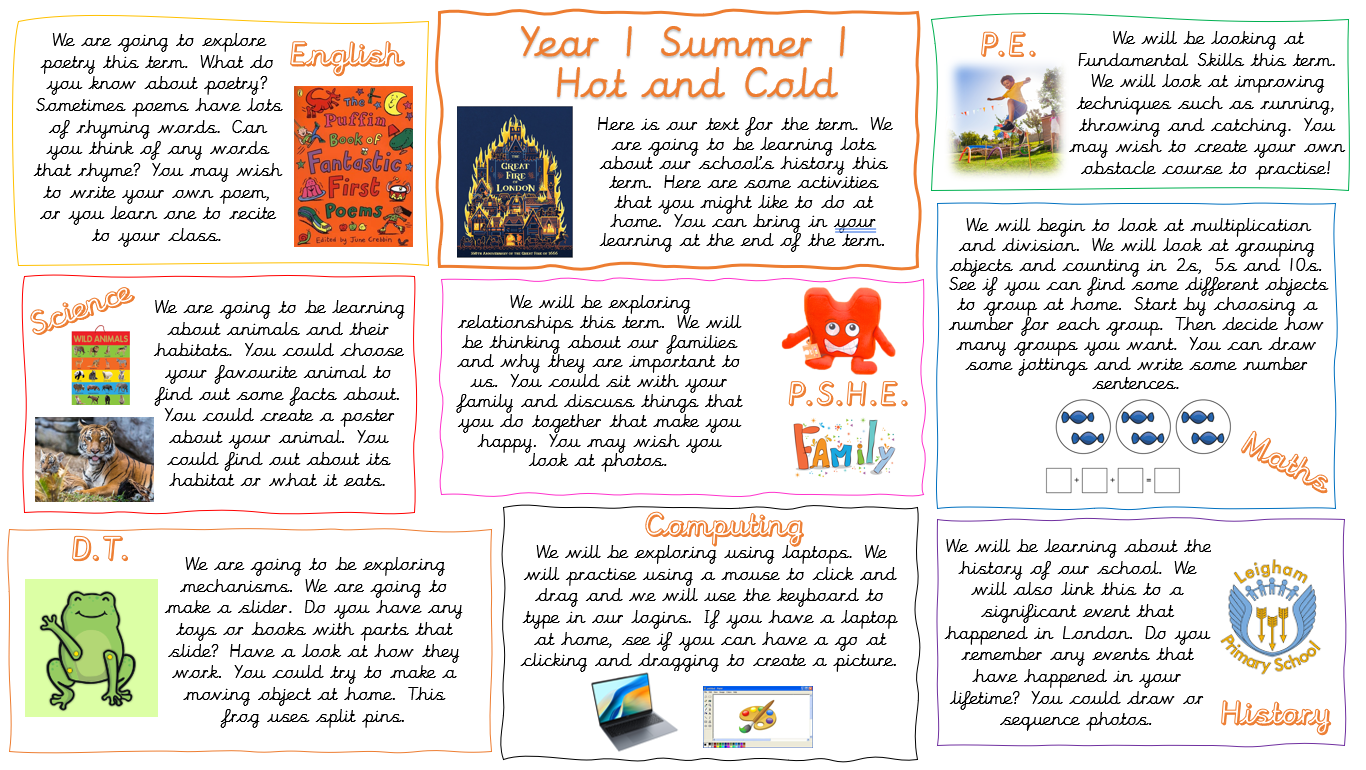 We are going to explore
poetry this term. What do
you know about poetry?
Sometimes poems have lots
of rhyming words. Can
you think of any words
that rhyme? You may wish
to write your own poem,
or you learn one to recite
to your class.
English
The
Puffin
Book of
Fantastic
First
Poems
Edited by June Crebbin
Year 1 Summer 1
Hot and Cold
THE
GREAT
FIRE
OF
LONDON
350TH ANNIVERSARY OF THE GREAT FIRE OF 1666
Here is our text for the term. We
are going to be learning lots
about our school's history this
term. Here are some activities
that you might like to do at
home. You can bring in your
learning at the end of the term.
P.E.
We will be looking at
Fundamental Skills this term.
We will look at improving
techniques such as running,
throwing and catching. You
may wish to create your own
obstacle course to practise!
Science
WILD ANIMALS
We are going to be learning
about animals and their
habitats. You could choose
your favourite animal to
find out some facts about.
You could create a poster
about your animal. You
could find out about its
habitat or what it eats.
We will be exploring
relationships this term. We will
be thinking about our families
and why they are important to
us. You could sit with your
family and discuss things that
you do together that make you
happy. You may wish you
look at photos.
P.S.H.E.
Family
We will begin to look at multiplication
and division. We will look at grouping
objects and counting in 2s, 5s and 10s.
See if you can find some different objects
to group at home. Start by choosing a
number for each group. Then decide how
many groups you want. You can draw
some jottings and write some number
sentences.
+ + =
Maths
D.T.
We are going to be exploring
mechanisms. We are going to
make a slider. Do you have any
toys or books with parts that
slide? Have a look at how they
work. You could try to make a
moving object at home. This
frog uses split pins.
Computing
We will be exploring using laptops. We
will practise using a mouse to click and
drag and we will use the keyboard to
type in our logins. If you have a laptop
at home, see if you can have a go at
clicking and dragging to create a picture.
We will be learning about the
history of our school. We
will also link this to a
significant event that
happened in London. Do you
remember any events that
have happened in your
lifetime? You could draw or
sequence photos.
Leigham
Primary School
History